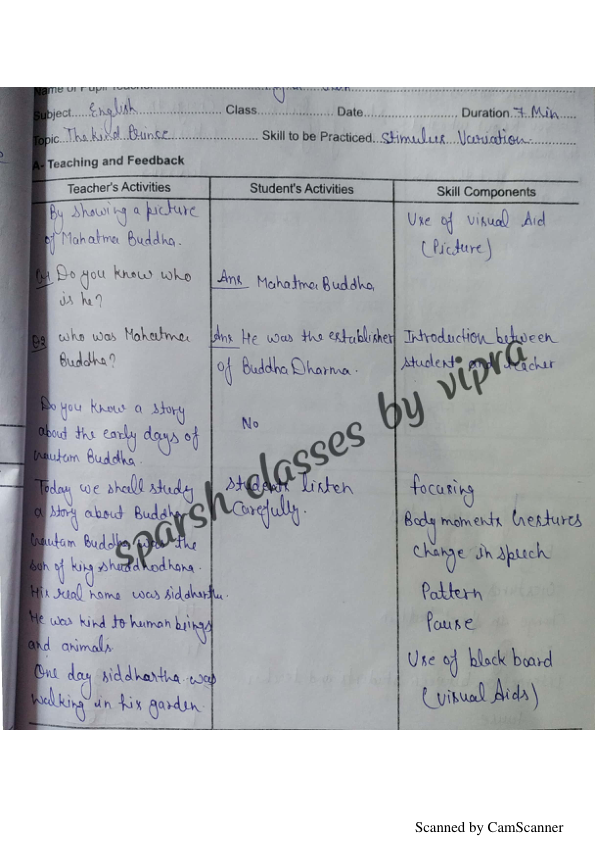 Name of Pupil Teacher
Subject.... English Class Date Duration 7 Min
Topic The kind Prince Skill to be Practiced Stimulus Variation
A- Teaching and Feedback
Teacher's Activities Student's Activities Skill Components
By showing a picture
of Mahatma Buddha.
Use of visual Aid
(Picture)
Q1 Do you know who
is he?
Ans Mahatma Buddha
Q2 who was Mahatma
Buddha?
Ans He was the establisher
of Buddha Dharma.
Introduction between
student and teacher
Do you know a story
about the early days of
Gautam Buddha.
No
Today we shall study
a story about Buddha
Gautam Buddha was the
son of king Shuddhodhana.
His real name was siddhartha.
He was kind to human beings
and animals
One day siddhartha was
walking in his garden.
Students listen
carefully.
focusing
Body moments Gestures
change in speech
Pattern
Pause
Use of black board
(visual Aids)
sparsh classes by vipra
Scanned by CamScanner